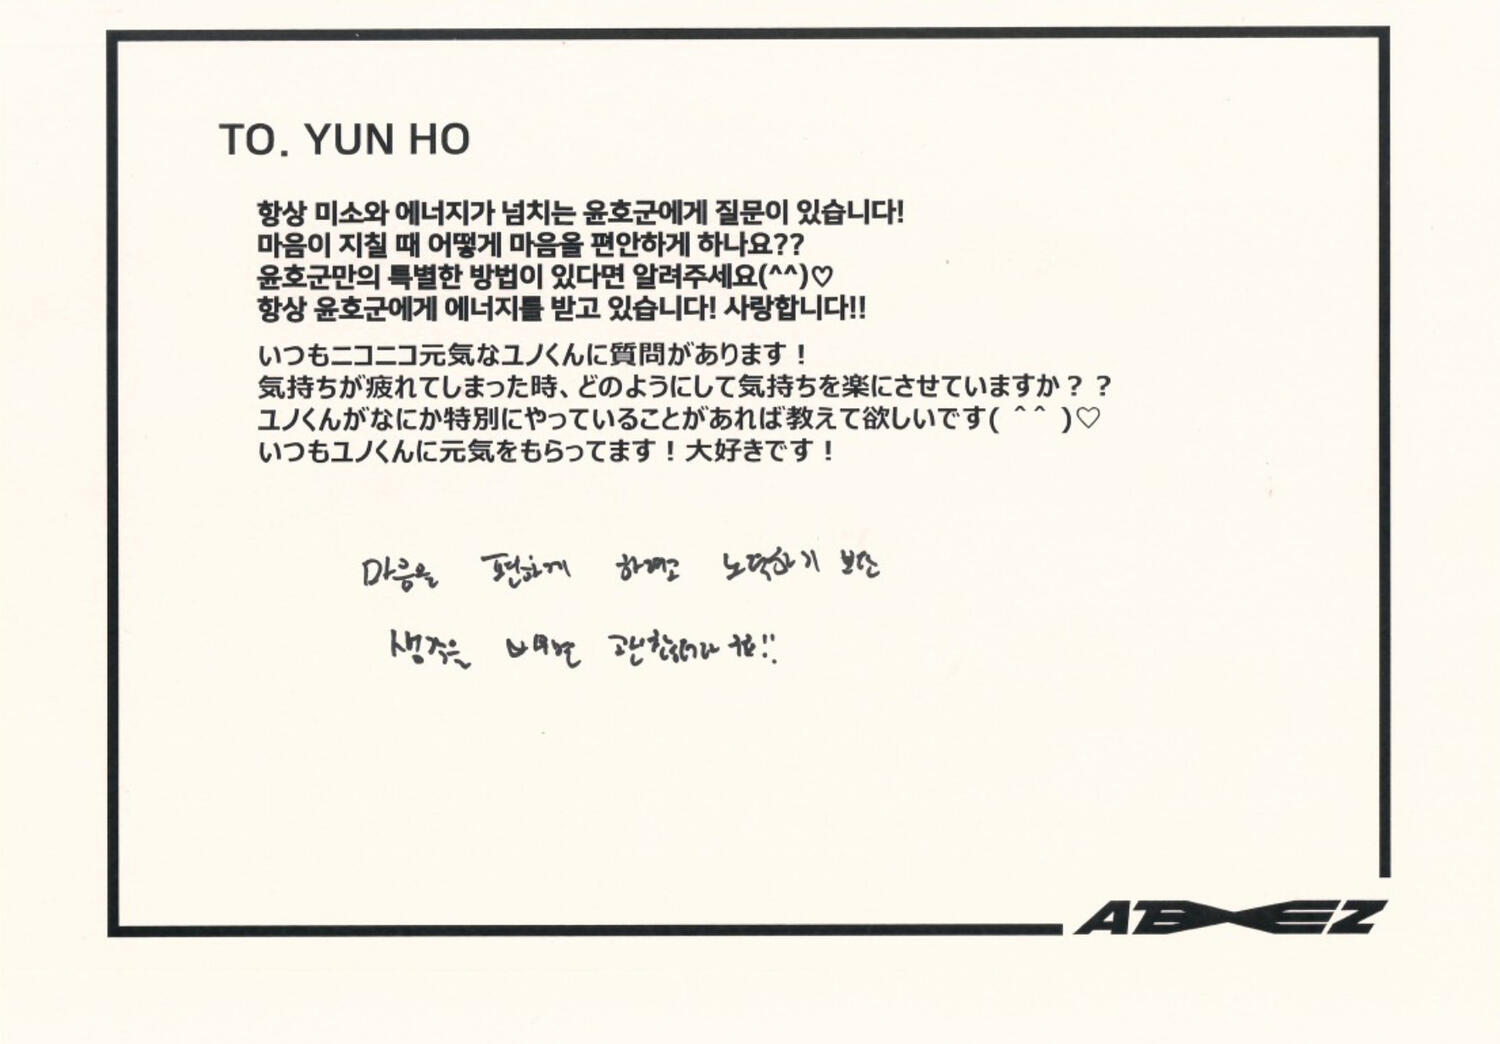 TO. YUN HO
항상 미소와 에너지가 넘치는 윤호군에게 질문이 있습니다!
마음이 지칠 때 어떻게 마음을 편안하게 하나요??
윤호군만의 특별한 방법이 있다면 알려주세요(^^)♡
항상 윤호군에게 에너지를 받고 있습니다! 사랑합니다!!
いつもニコニコ元気なユノくんに質問があります！
気持ちが疲れてしまった時、どのようにして気持ちを楽にさせていますか？？
ユノくんがなにか特別にやっていることがあれば教えて欲しいです( ^^ )♡
いつもユノくんに元気をもらってます！大好きです！
마음을 편하게 하려고 노력하기 보단
생각을 비우면